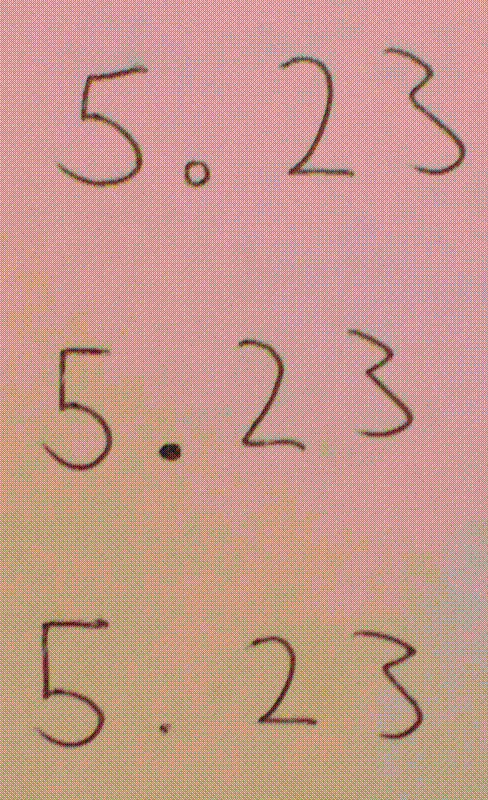 5.23
5.23
5.23